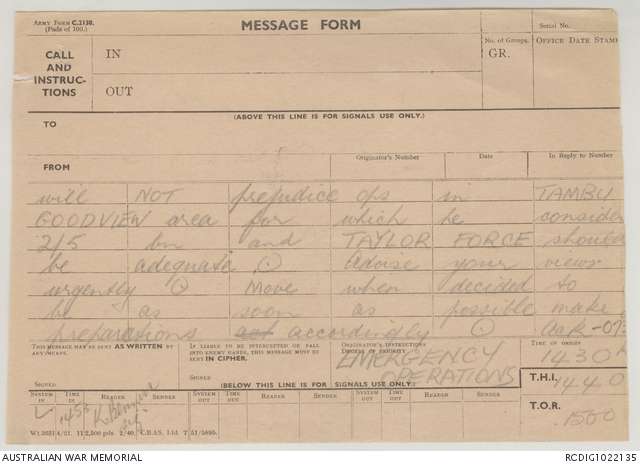 ARMY FORM C.2136.
(Pads of 100.)
MESSAGE FORM
Serial No.
CALL AND INSTRUC-TIONS
IN
OUT
No. of Groups.
GR.
OFFICE DATE STAMP
(ABOVE THIS LINE IS FOR SIGNALS USE ONLY.)
TO
FROM
Originator's Number
Date
In Reply to Number
will NOT prejudice ops in TAMBU
GOODVIEW area for which he consider
2/5 bn and TAYLOR FORCE should
be adequate . Advise your views
urgently . Move when decided to
be as soon as possible make
preparations accordingly . ack -
THIS MESSAGE MAY BE SENT AS WRITTEN BY ANY MEANS.
IF LIABLE TO BE INTERCEPTED OR FALL INTO ENEMY HANDS, THIS MESSAGE MUST BE SENT IN CIPHER.
ORIGINATOR'S INSTRUCTIONS
DEGREE OF PRIORITY
EMERGENCY
OPERATIONS
TIME OF ORIGIN
1430
SIGNED
SIGNED
(BELOW THIS LINE IS FOR SIGNALS USE ONLY.)
T.H.I.
1440
SYSTEM IN
TIME IN
READER
SENDER
SYSTEM OUT
TIME OUT
READER
SENDER
SYSTEM OUT
TIME OUT
READER
SENDER
T.O.R.
1500
1455
AUSTRALIAN WAR MEMORIAL
RCDIG1022135